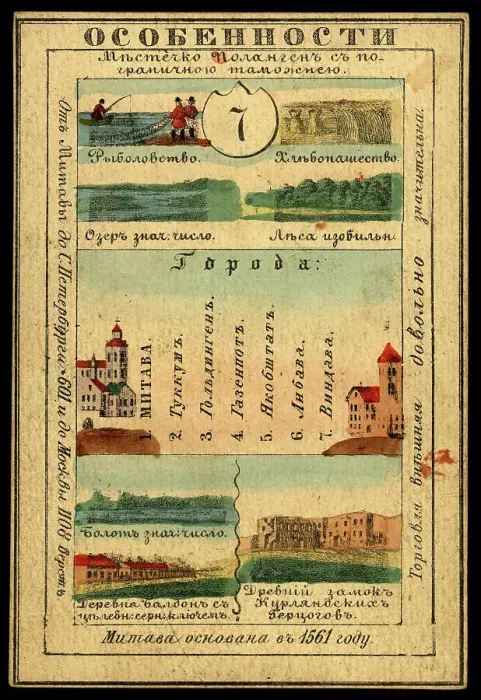 ОСОБЕННОСТИ
Мѣстечко Полангенъ съ по-
граничною таможнею.
7
Рыболовство.
Хлѣбопашество.
Озеръ знач: число.
Лѣса изобильн.
Отъ Митавы до С.Петербурга 601 и до Москвы 1108 верстъ
Города:
1. МИТАВА.
2. Туккумъ.
3. Гольдингенъ.
4. Газенпотъ.
5. Якобштатъ.
6. Либава.
7. Виндава.
Торговля внѣшняя довольно значительна.
Болотъ знач: число.
Деревня Балдонъ съ
цѣлебн: серн: ключемъ.
Древній замокъ
Курляндскихъ
Герцоговъ.
Митава основана въ 1561 году.